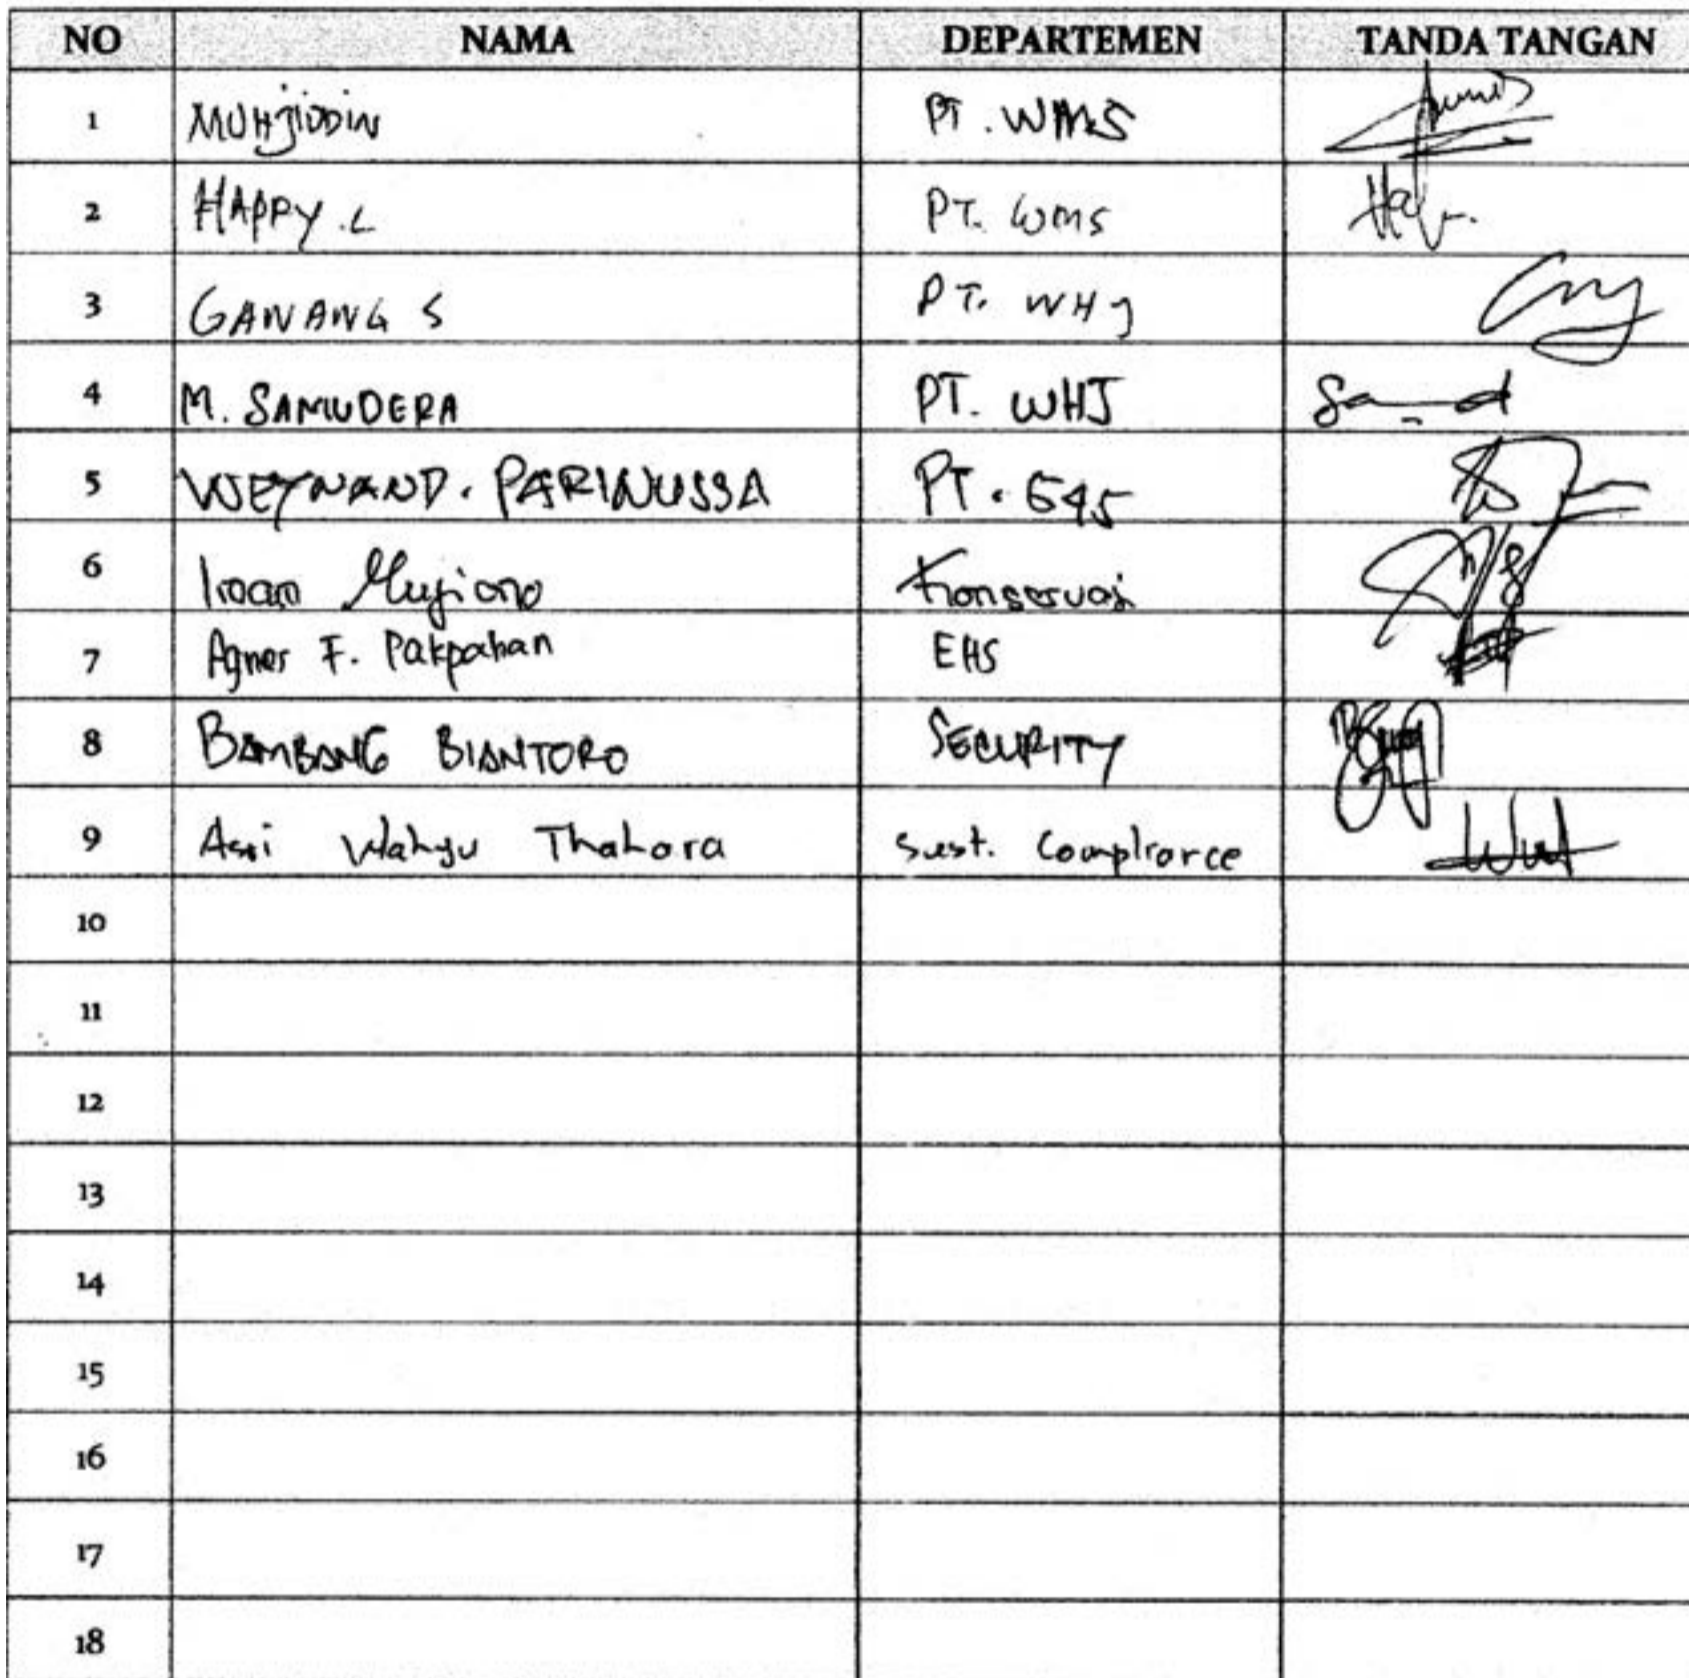 NO NAMA DEPARTEMEN TANDA TANGAN
1 MUHJIDDIN PT. WMS
2 HAPPY. L PT. WMS
3 GANANG S PT. WHJ
4 M. SAMUDERA PT. WHJ Sa d
5 WEYNAND. PARINUSSA PT.
6 Iman Mugiono Konservasi
7 Agner F. Pakpahan EHS
8 BAMBANG BIANTORO SECURITY
9 Asri Wahyu Thahara Sust. Compliance
10
11
12
13
14
15
16
17
18